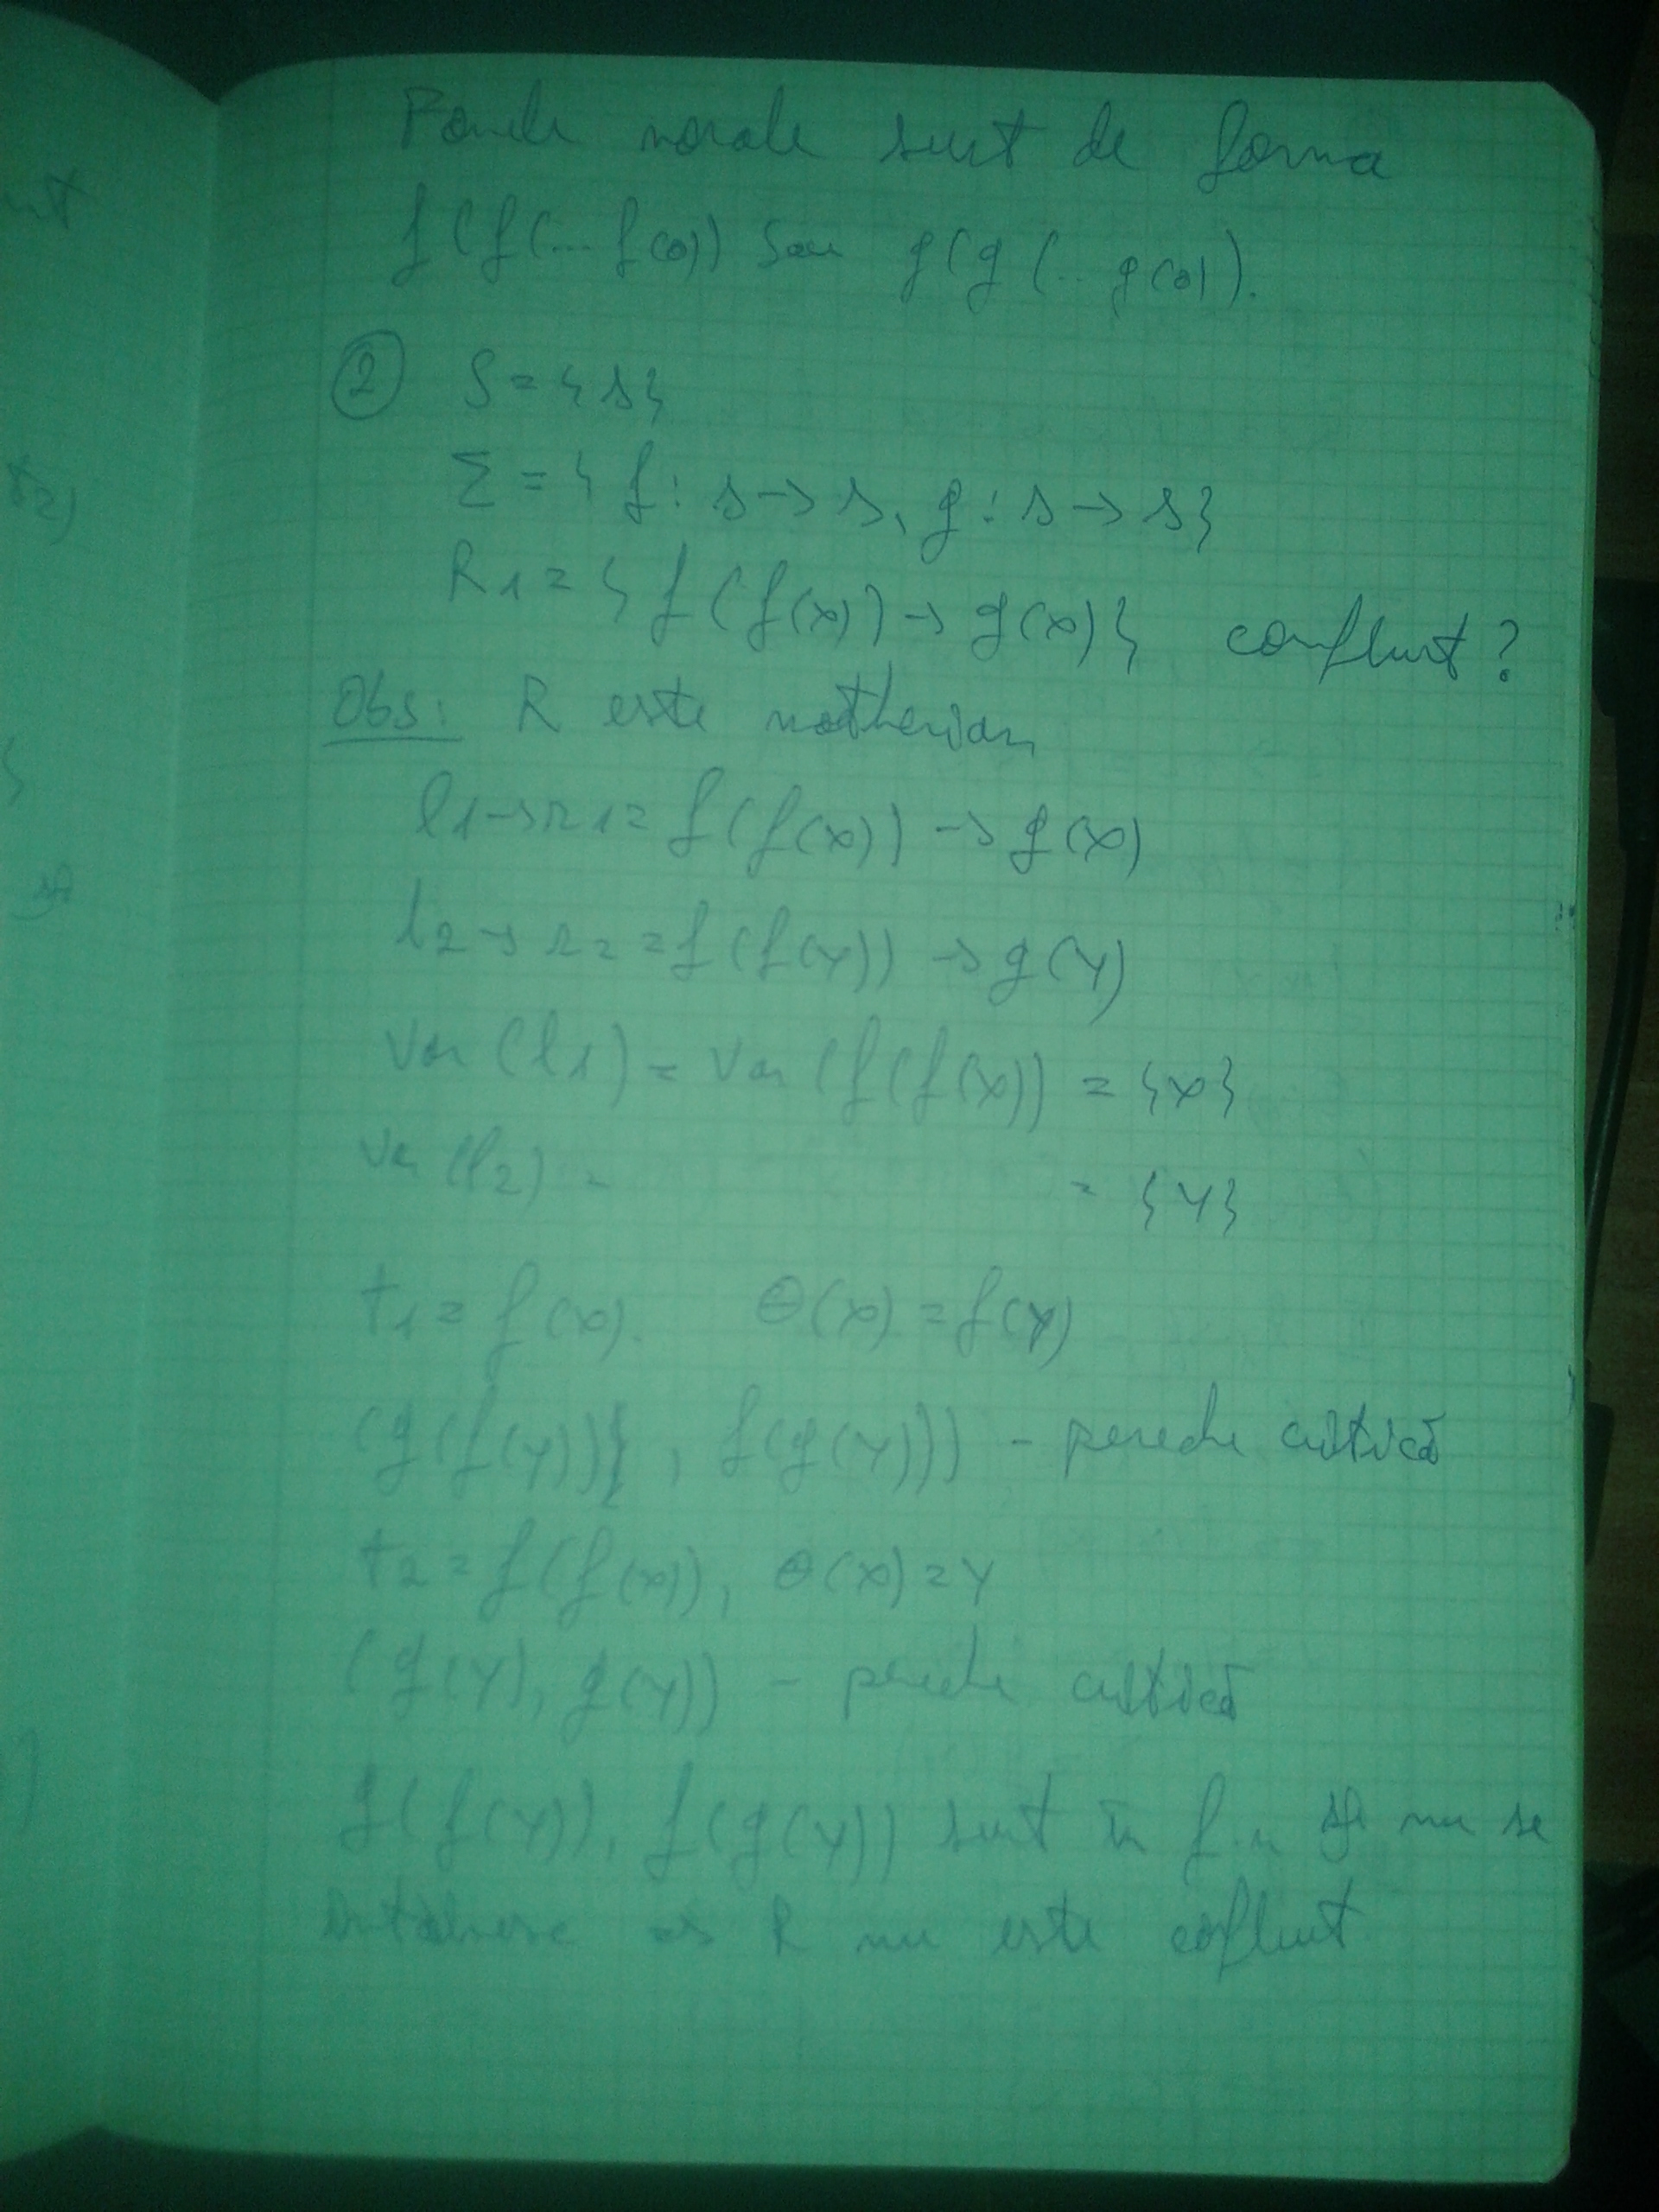 Formele normale sunt de forma
f(f(...f(0)) sau g(g(..g(0)).
② S = {s}
Σ = { f: s → s, g: s → s}
R1 = { f(f(x)) → g(x)} confluent?
Obs: R este noetherian
l1→r1 = f(f(x)) → g(x)
l2→r2 = f(f(y)) → g(y)
Var(l1) = Var(f(f(x)) = {x}
Var(l2) = = {y}
t1 = f(x). θ(x) = f(y)
(g(f(y)), f(g(y))) - pereche critică
t2 = f(f(x)), θ(x) = y
(g(y), g(y)) - pereche critică
g(f(y)), f(g(y)) sunt în f.n și nu se
întâlnesc => R nu este confluent.
și